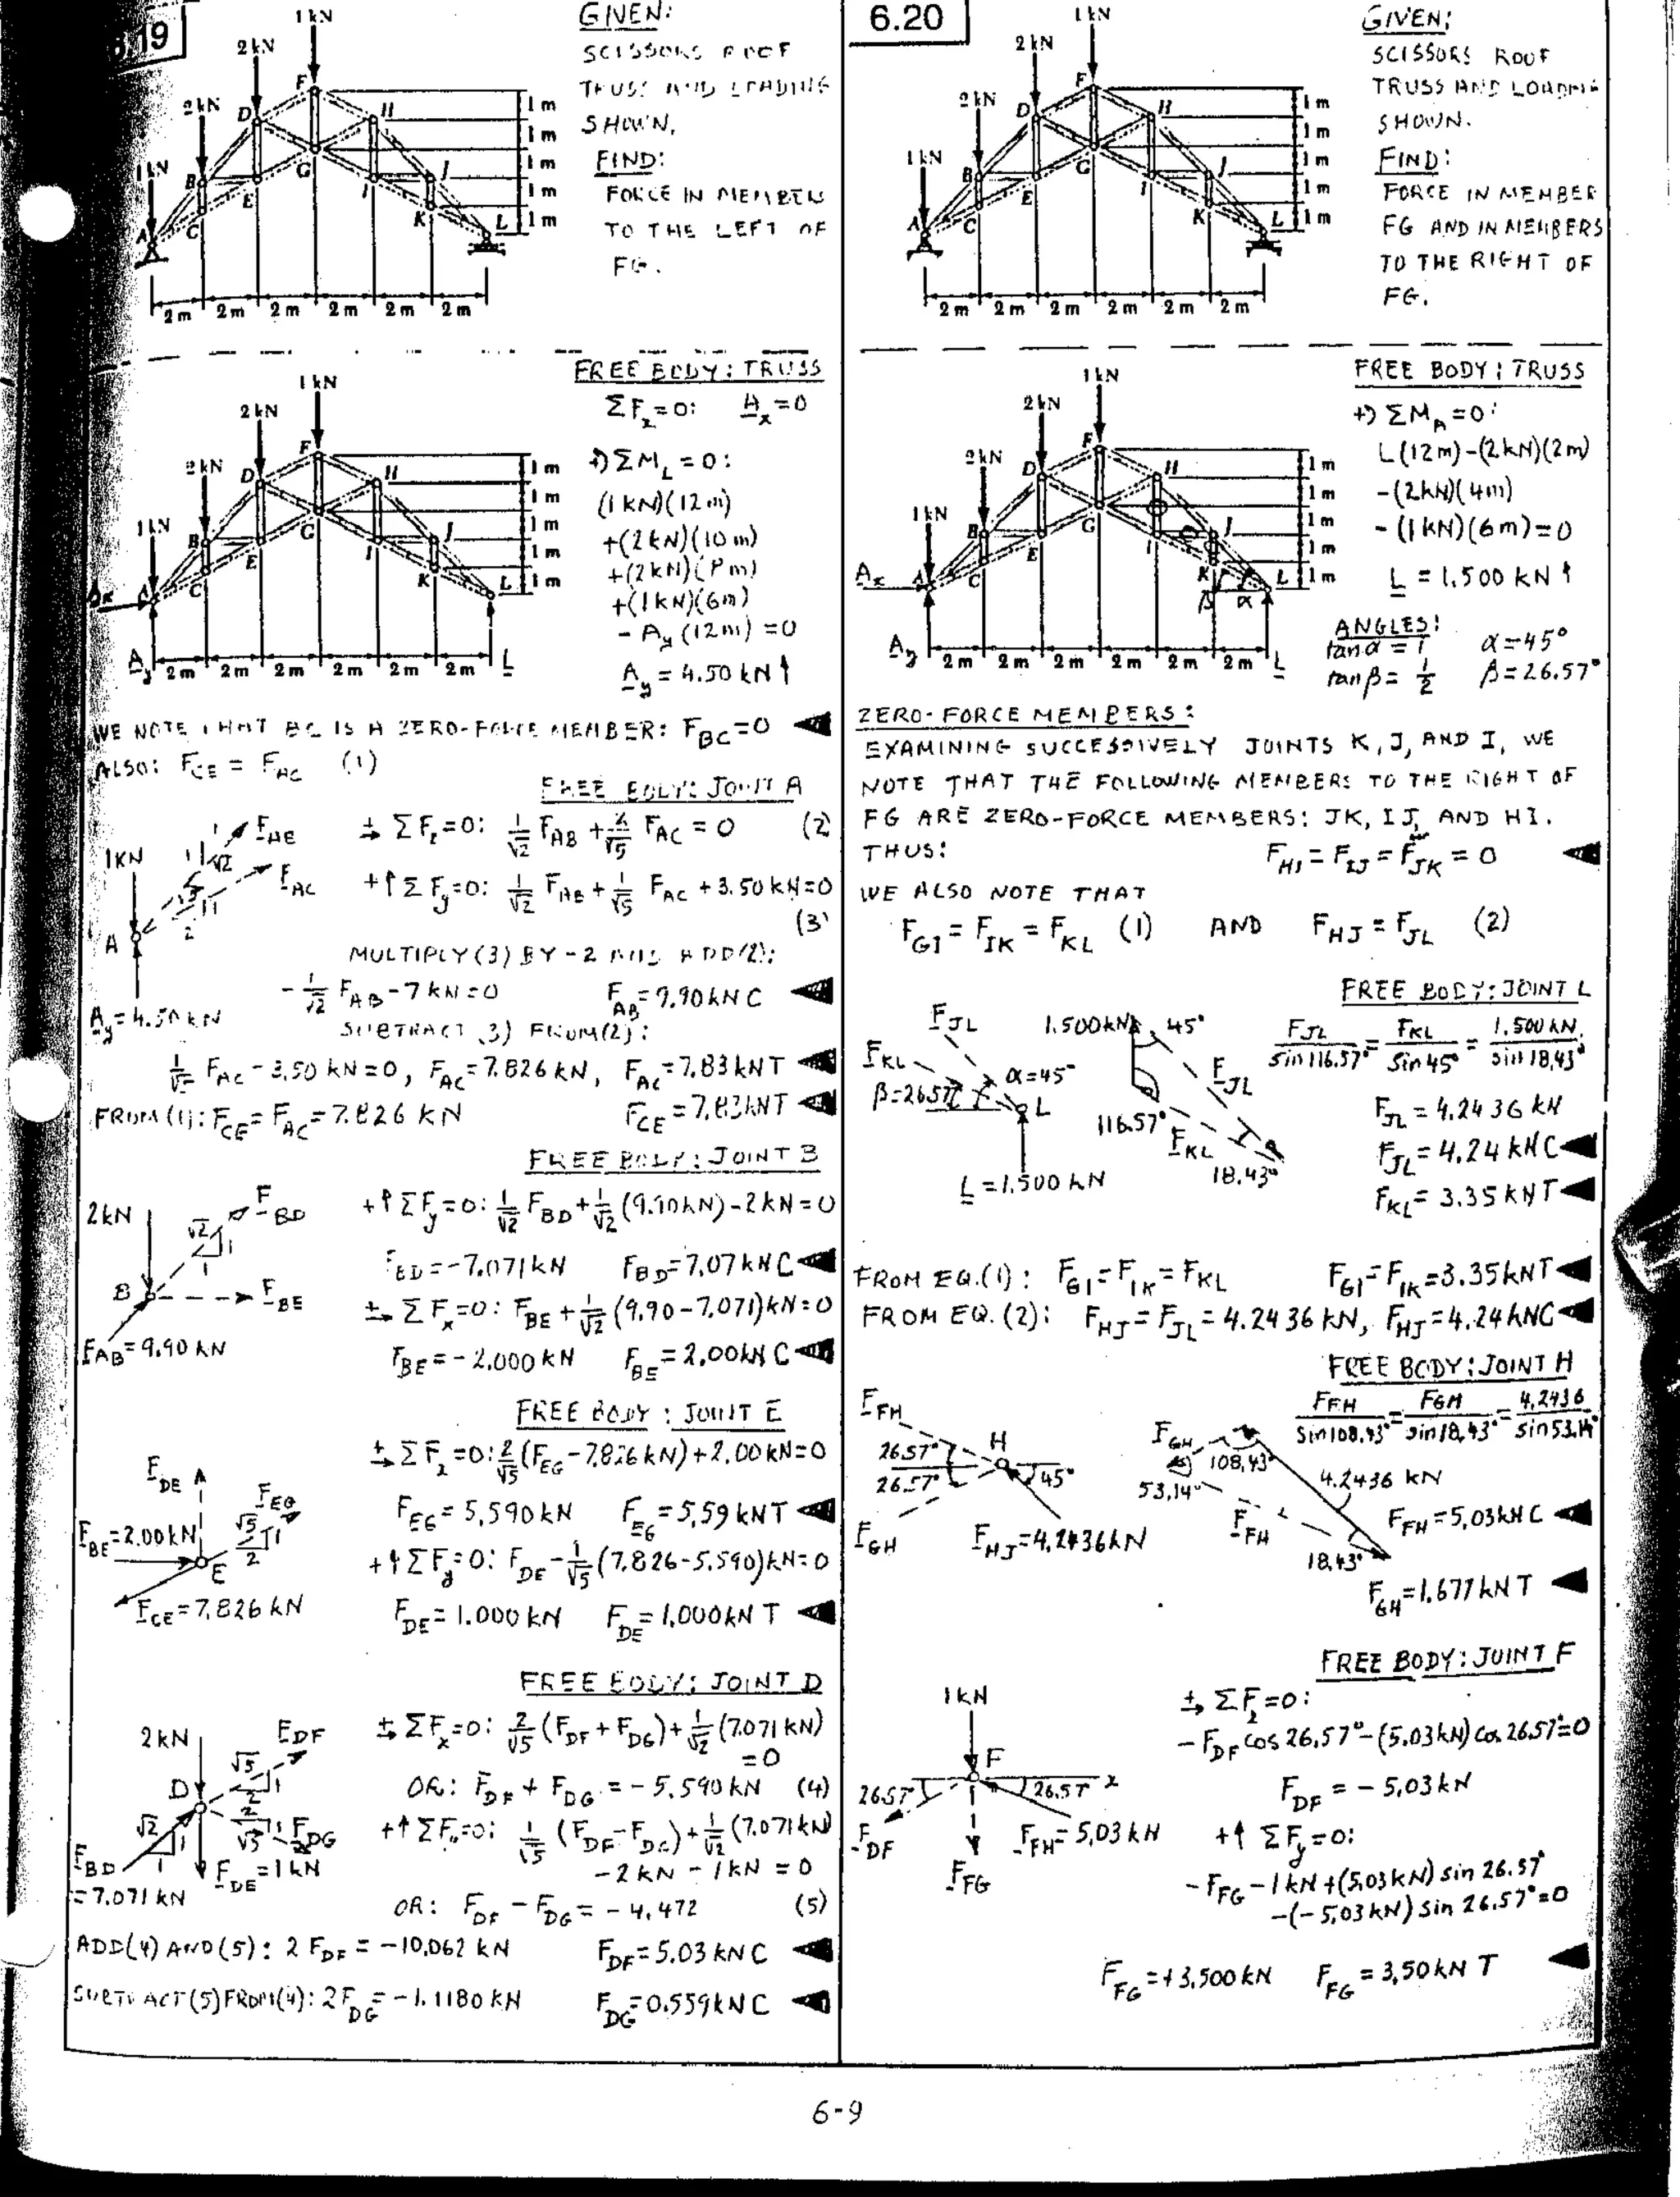 6.19
1 kN
2 kN
2 kN
1 kN
A
B
C
D
E
F
G
H
I
J
K
L
1 m
1 m
1 m
1 m
1 m
2 m 2 m 2 m 2 m 2 m 2 m
GIVEN:
SCISSORS ROOF
TRUSS AND LOADING
SHOWN.
FIND:
FORCE IN MEMBERS
TO THE LEFT OF
FG.
FREE BODY: TRUSS
ΣFx = 0: Ax = 0
+) ΣM_L = 0:
(1 kN)(12 m)
+(2 kN)(10 m)
+(2 kN)(8 m)
+(1 kN)(6 m)
- Ay (12 m) = 0
Ay = 4.50 kN ↑
1 kN
2 kN
2 kN
1 kN
Ax
A
B
C
D
E
F
G
H
I
J
K
L
1 m
1 m
1 m
1 m
1 m
Ay 2 m 2 m 2 m 2 m 2 m 2 m L
WE NOTE THAT BC IS A ZERO-FORCE MEMBER: F_BC = 0 ◄
ALSO: F_CE = F_AC (1)
FREE BODY: JOINT A
1 kN
F_AB
F_AC
1 1 √2
√5 1 2
A
Ay = 4.50 kN
+→ ΣFx = 0: 1/√2 F_AB + 2/√5 F_AC = 0 (2)
+↑ ΣFy = 0: 1/√2 F_AB + 1/√5 F_AC + 3.50 kN = 0
(3)
MULTIPLY (3) BY -2 AND ADD (2):
- 1/√2 F_AB - 7 kN = 0 F_AB = 9.90 kN C ◄
SUBTRACT (3) FROM (2):
1/√5 F_AC - 3.50 kN = 0, F_AC = 7.826 kN, F_AC = 7.83 kN T ◄
FROM (1): F_CE = F_AC = 7.826 kN F_CE = 7.83 kN T ◄
FREE BODY: JOINT B
2 kN
F_BD
√2 1 1
B
F_BE
F_AB = 9.90 kN
+↑ ΣFy = 0: 1/√2 F_BD + 1/√2 (9.90 kN) - 2 kN = 0
F_BD = -7.071 kN F_BD = 7.07 kN C ◄
+→ ΣFx = 0: F_BE + 1/√2 (9.90 - 7.071) kN = 0
F_BE = - 2.000 kN F_BE = 2.00 kN C ◄
FREE BODY: JOINT E
F_DE
F_EG
√5 1 2
F_BE = 2.00 kN
E
F_CE = 7.826 kN
+→ ΣFx = 0: 2/√5 (F_EG - 7.826 kN) + 2.00 kN = 0
F_EG = 5.590 kN F_EG = 5.59 kN T ◄
+↑ ΣFy = 0: F_DE - 1/√5 (7.826 - 5.590) kN = 0
F_DE = 1.000 kN F_DE = 1.000 kN T ◄
FREE BODY: JOINT D
2 kN
F_DF
√5 1 2
D
2 1 √5
F_DG
√2 1 1
F_BD = 7.071 kN
F_DE = 1 kN
+→ ΣFx = 0: 2/√5 (F_DF + F_DG) + 1/√2 (7.071 kN)
= 0
OR: F_DF + F_DG = - 5.590 kN (4)
+↑ ΣFy = 0: 1/√5 (F_DF - F_DG) + 1/√2 (7.071 kN)
- 2 kN - 1 kN = 0
OR: F_DF - F_DG = - 4.472 (5)
ADD (4) AND (5): 2 F_DF = -10.062 kN F_DF = 5.03 kN C ◄
SUBTRACT (5) FROM (4): 2 F_DG = - 1.1180 kN F_DG = 0.559 kN C ◄
6.20
1 kN
2 kN
2 kN
1 kN
A
B
C
D
E
F
G
H
I
J
K
L
1 m
1 m
1 m
1 m
1 m
2 m 2 m 2 m 2 m 2 m 2 m
GIVEN:
SCISSORS ROOF
TRUSS AND LOADING
SHOWN.
FIND:
FORCE IN MEMBER
FG AND IN MEMBERS
TO THE RIGHT OF
FG.
FREE BODY: TRUSS
+) ΣM_A = 0:
L(12 m) - (2 kN)(2 m)
- (2 kN)(4 m)
- (1 kN)(6 m) = 0
L = 1.500 kN ↑
ANGLES:
tan α = 1 α = 45°
tan β = 1/2 β = 26.57°
1 kN
2 kN
2 kN
1 kN
Ax
A
B
C
D
E
F
G
H
I
J
K
L
β α
1 m
1 m
1 m
1 m
1 m
Ay 2 m 2 m 2 m 2 m 2 m 2 m L
ZERO-FORCE MEMBERS:
EXAMINING SUCCESSIVELY JOINTS K, J, AND I, WE
NOTE THAT THE FOLLOWING MEMBERS TO THE RIGHT OF
FG ARE ZERO-FORCE MEMBERS: JK, IJ, AND HI.
THUS: F_HI = F_IJ = F_JK = 0 ◄
WE ALSO NOTE THAT
F_GI = F_IK = F_KL (1) AND F_HJ = F_JL (2)
FREE BODY: JOINT L
F_JL
F_KL
α = 45°
β = 26.57°
L
L = 1.500 kN
1.500 kN
45°
F_JL
116.57°
F_KL
18.43°
F_JL/sin 116.57° = F_KL/sin 45° = 1.500 kN/sin 18.43°
F_JL = 4.2436 kN
F_JL = 4.24 kN C ◄
F_KL = 3.35 kN T ◄
FROM EQ. (1): F_GI = F_IK = F_KL F_GI = F_IK = 3.35 kN T ◄
FROM EQ. (2): F_HJ = F_JL = 4.2436 kN, F_HJ = 4.24 kN C ◄
FREE BODY: JOINT H
F_FH
26.57°
H
26.57°
45°
F_GH
F_HJ = 4.2436 kN
F_GH
108.43°
53.14°
4.2436 kN
F_FH
18.43°
F_FH/sin 108.43° = F_GH/sin 18.43° = 4.2436/sin 53.14°
F_FH = 5.03 kN C ◄
F_GH = 1.677 kN T ◄
FREE BODY: JOINT F
1 kN
F
26.57°
26.57°
x
F_DF
F_FG
F_FH = 5.03 kN
+→ ΣFx = 0:
- F_DF cos 26.57° - (5.03 kN) cos 26.57° = 0
F_DF = - 5.03 kN
+↑ ΣFy = 0:
- F_FG - 1 kN + (5.03 kN) sin 26.57°
- (- 5.03 kN) sin 26.57° = 0
F_FG = + 3.500 kN F_FG = 3.50 kN T ◄
6-9